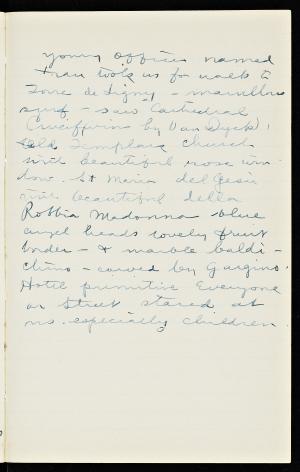 young officer named
took us for walk to
Torre de Ligny - marvellous
surf - saw Cathedral
(Crucifixion by Van Dyck),
old Templars Church
with beautiful rose win-
dow. St Maria del Gesu
with beautiful della
Robbia Madonna blue
angel heads lovely fruit
border - & marble baldi-
chino - carved by Gagino.
Hotel primitive Everyone
on street stared at
us. especially children